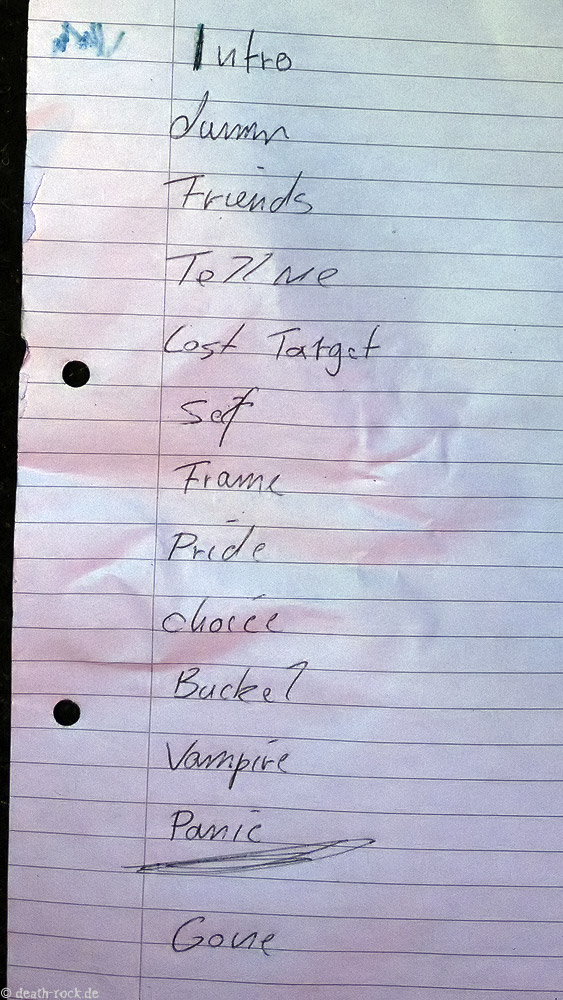 Intro
damn
Friends
Tell me
Lost Target
Self
Frame
Pride
choice
Bucket
Vampire
Panic
Gone
© death-rock.de